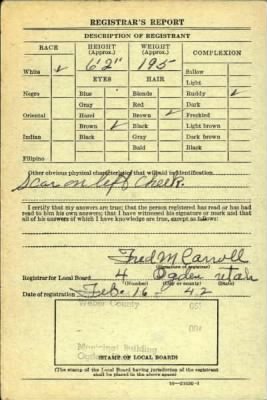 REGISTRAR'S REPORT
DESCRIPTION OF REGISTRANT
RACE HEIGHT (Approx.) WEIGHT (Approx.) COMPLEXION
6'2" 195
White ✓ Sallow
EYES HAIR Light
Negro Blue Blonde Ruddy ✓
Gray Red Dark
Oriental Hazel Brown ✓ Freckled
Brown ✓ Black Light brown
Indian Black Gray Dark brown
Bald Black
Filipino
Other obvious physical characteristics that will aid in identification
Scar on left cheek.
I certify that my answers are true; that the person registered has read or has had
read to him his own answers; that I have witnessed his signature or mark and that
all of his answers of which I have knowledge are true, except as follows:
Fred M Carroll
(Signature of registrar)
Registrar for Local Board 4 Ogden Utah
(Number) (City or county) (State)
Date of registration Feb. 16 - 42
Weber County
Municipal Building
(STAMP OF LOCAL BOARD)
(The stamp of the Local Board having jurisdiction of the registrant
shall be placed in the above space)